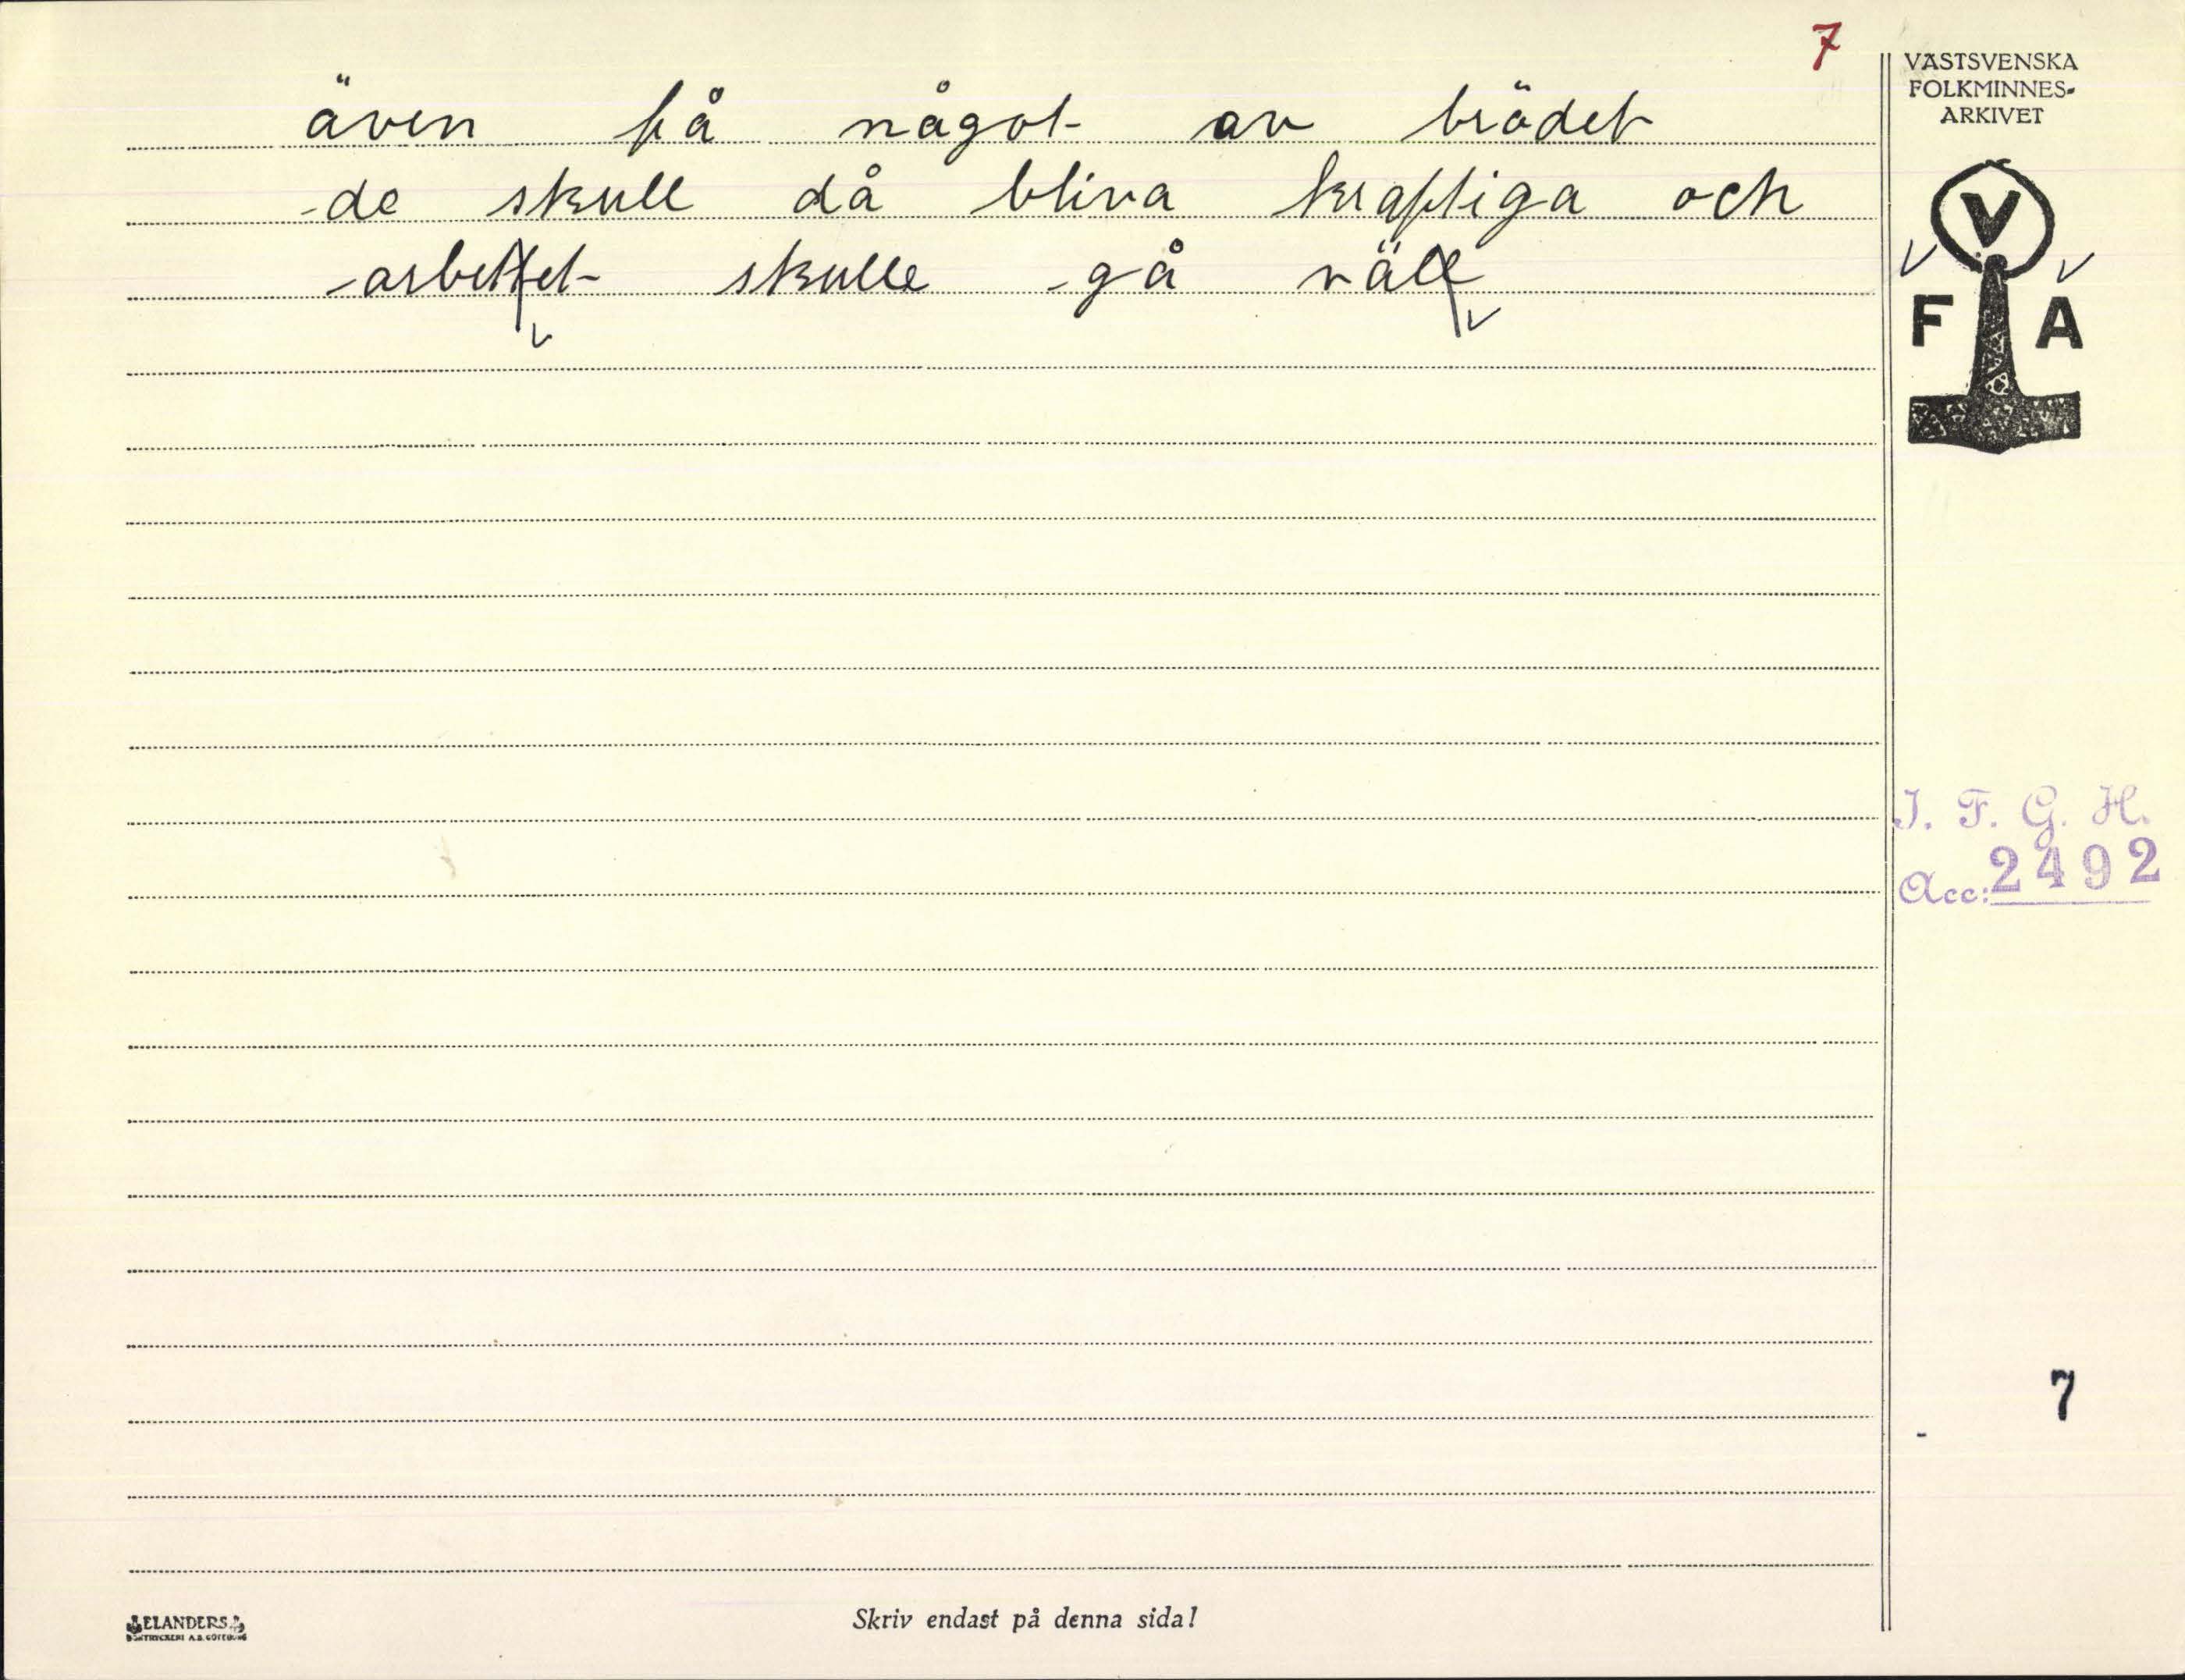 7
VÄSTSVENSKA
FOLKMINNES-
ARKIVET
även få något av brödet
de skull då bliva kraftiga och
arbettet skulle gå väll
V
F A
I. F. G. H.
Acc: 2492
7
ELANDERS
BOKTRYCKERI A.B. GÖTEBORG
Skriv endast på denna sida!